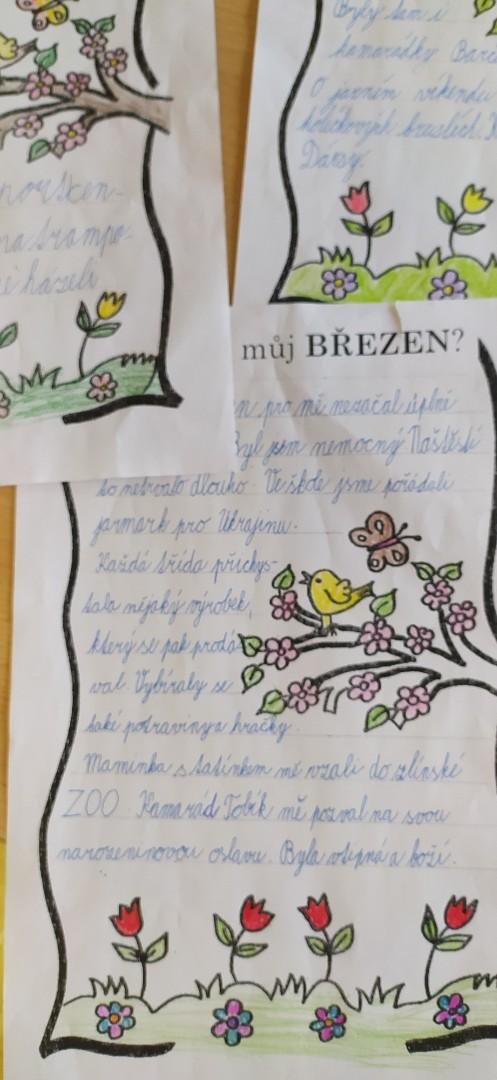 norsken-
na trampo-
é házeli
Byly tam i
kamarádky Bar
O jarním víkendu
kolečkových bruslích.
Dársy.
můj BŘEZEN?
n pro mě nezačal úplně
Byl jsem nemocný Naštěstí
to netrvalo dlouho. Ve škole jsme pořádali
jarmark pro Ukrajinu.
Každá třída přichys-
tala nějaký výrobek,
který se pak prodá-
val. Vybíraly se
také potraviny a hračky.
Maminka s tatínkem mě vzali do zlínské
ZOO. Kamarád Tobík mě pozval na svou
narozeninovou oslavu. Byla vtipná a boží.